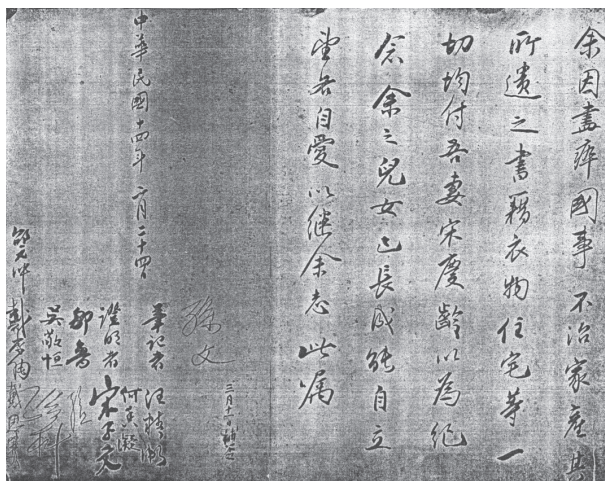 余因盡瘁國事不治家產其
所遺之書籍衣物住宅等一
切均付吾妻宋慶齡以為紀
念余之兒女已長成能自立
望各自愛以继余志此嘱
孫文
三月十一日補簽
中華民國十四年 二月二十四日
筆記者 汪精衛
證明者 宋子文
何香凝
鄒魯
吳敬恒
孫科
戴季陶
邵元冲